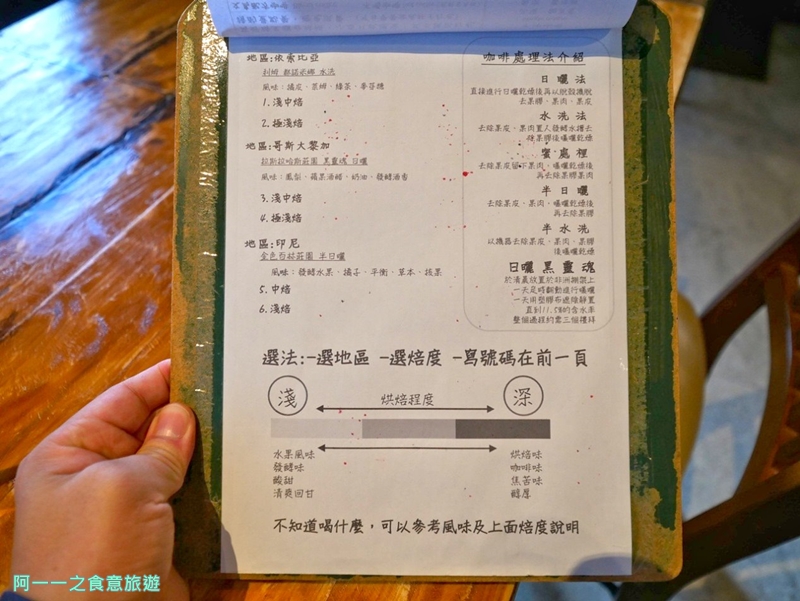 地區:依索比亞
利姆 水洗
風味:橘皮、萊姆、綠茶、麥芽糖
1.淺中焙
2.極淺焙
地區:哥斯大黎加
黑靈魂 日曬
風味:鳳梨、蘋果油醋、奶油、發酵酒香
3.淺中焙
4.極淺焙
地區:印尼
半日曬
風味:發酵水果、橘子、平衡、草本、核果
5.中焙
6.淺焙
咖啡處理法介紹
日曬法
直接進行日曬乾燥後再以脫殼機脫
去果膠、果肉、果皮
水洗法
去除果皮、果肉置入發酵水槽去
除果膠後曝曬乾燥
蜜處裡
去除果皮留下果肉、曝曬乾燥後
再去除果膠果肉
半日曬
去除果皮、果肉、曝曬乾燥後
再去除果膠
半水洗
以機器去除果皮、果肉、果膠
後曝曬乾燥
日曬黑靈魂
於清晨放置於非洲棚架上
一天定時翻動進行曝曬
一天用塑膠布遮蔭靜置
直到11.5%的含水率
整個過程約需三個禮拜
選法:-選地區 -選焙度 -寫號碼在前一頁
淺
烘焙程度
深
水果風味
發酵味
酸甜
清爽回甘
烘焙味
咖啡味
焦苦味
醇厚
不知道喝什麼,可以參考風味及上面焙度說明
阿一一之食意旅遊